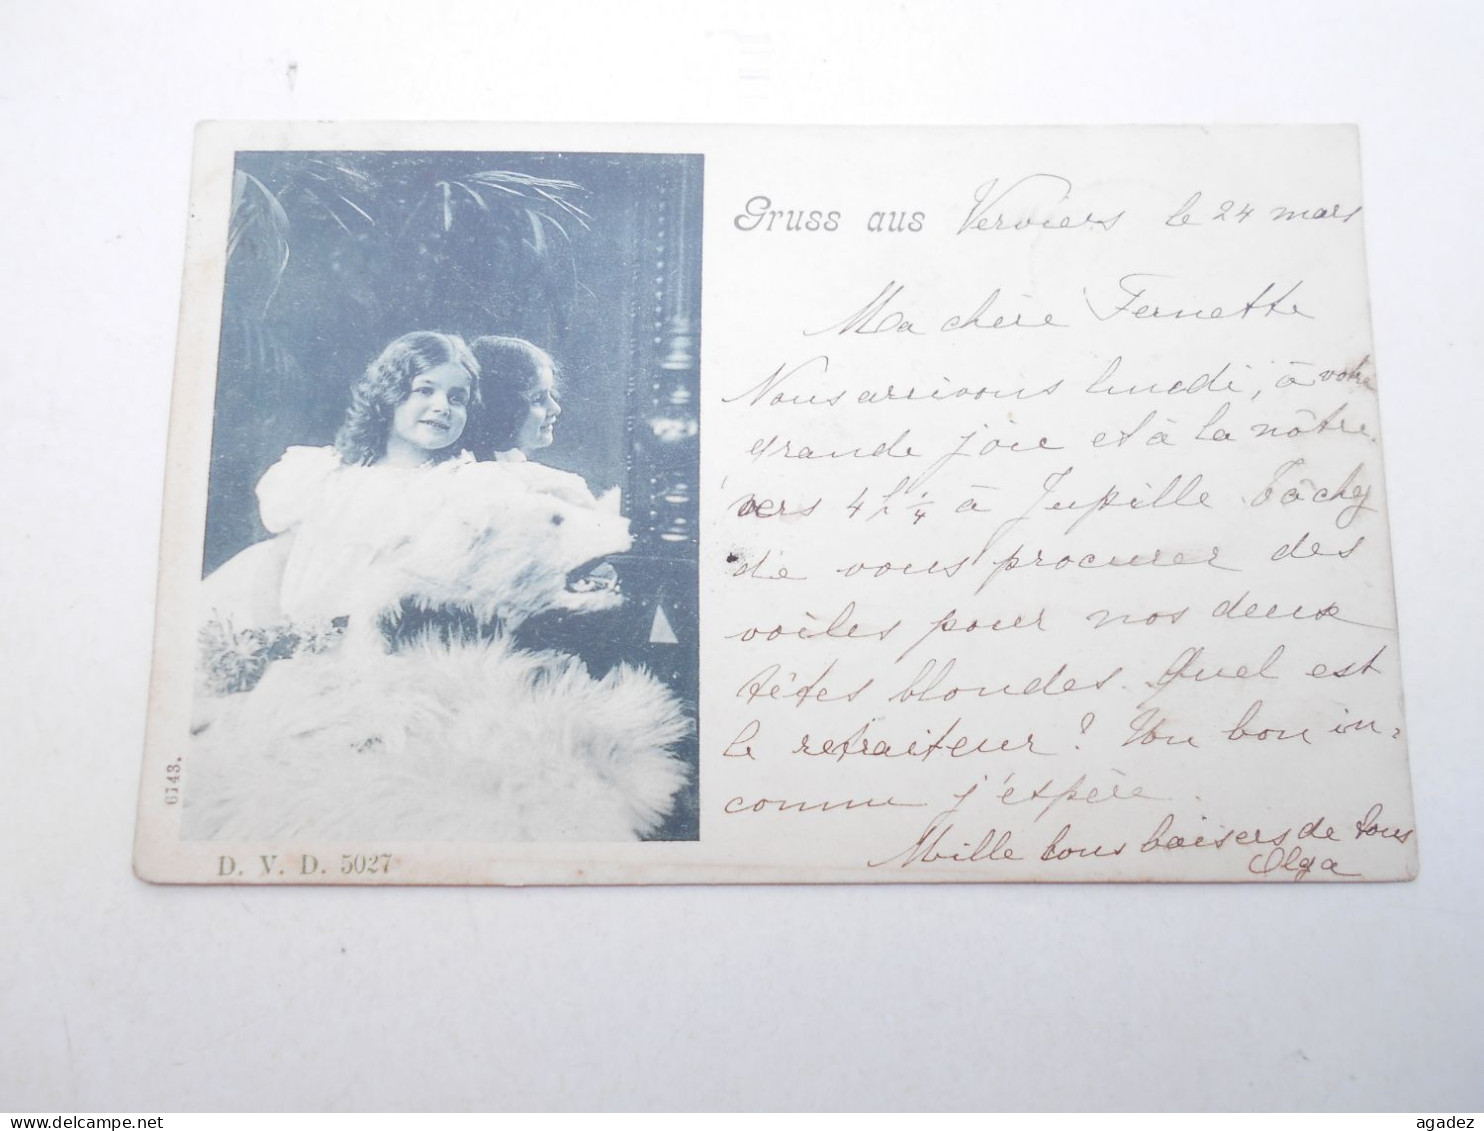 Gruss aus Verviers le 24 mars
Ma chère Fernette
Nous arrivons lundi, à votre
grande joie et à la nôtre
vers 4 h ¼ à Jupille. Tâchez
de vous procurer des
voiles pour nos deux
têtes blondes. Quel est
le retraiteur? Un bon in=
connu j'espère.
Mille bons baisers de tous
Olga
6143.
D. V. D. 5027
agadez